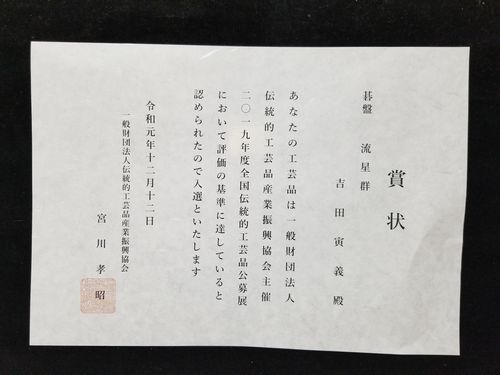 賞状
碁盤 流星群
吉田寅義殿
あなたの工芸品は一般財団法人
伝統的工芸品産業振興協会主催
二〇一九年度全国伝統的工芸品公募展
において評価の基準に達していると
認められたので入選といたします
令和元年十二月十二日
一般財団法人伝統的工芸品産業振興協会
宮川孝昭